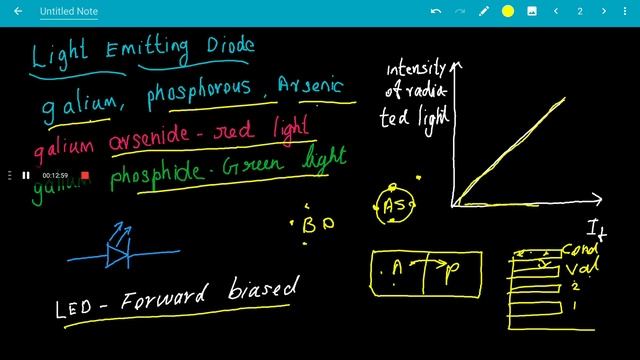 Untitled Note
2
Light Emitting Diode
galium, phosphorous, Arsenic
galium arsenide - red light
galium phosphide - Green light
00:12:59
LED - Forward biased
intensity
of radia-
ted light
If
AS
BD
A
P
Cond
Val
2
1